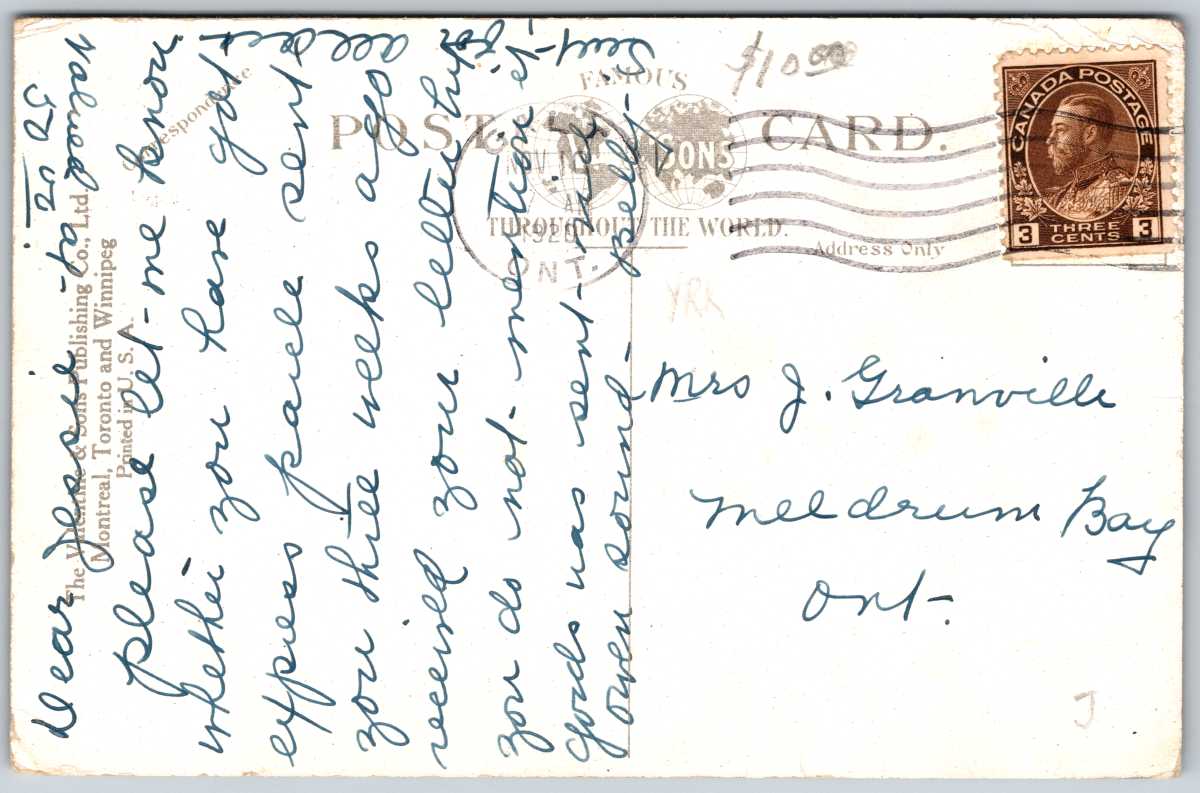 $10.00
FAMOUS
POST CARD.
SONS
THROUGHOUT THE WORLD.
NOV
AM
1920
ONT.
Address Only
CANADA POSTAGE
3 THREE CENTS 3
YRK
Mrs J. Granville
Meldrum Bay
Ont.
J
Correspondence
The Valentine & Sons Publishing Co., Ltd.
Montreal, Toronto and Winnipeg
Printed in U. S. A.
Dear Jessie
please let me know
whether you have got
express parcle sent
you three weeks ago
received your letter but
you do not mention it
goods was sent
owen sound
Belly
valued at
all
sent